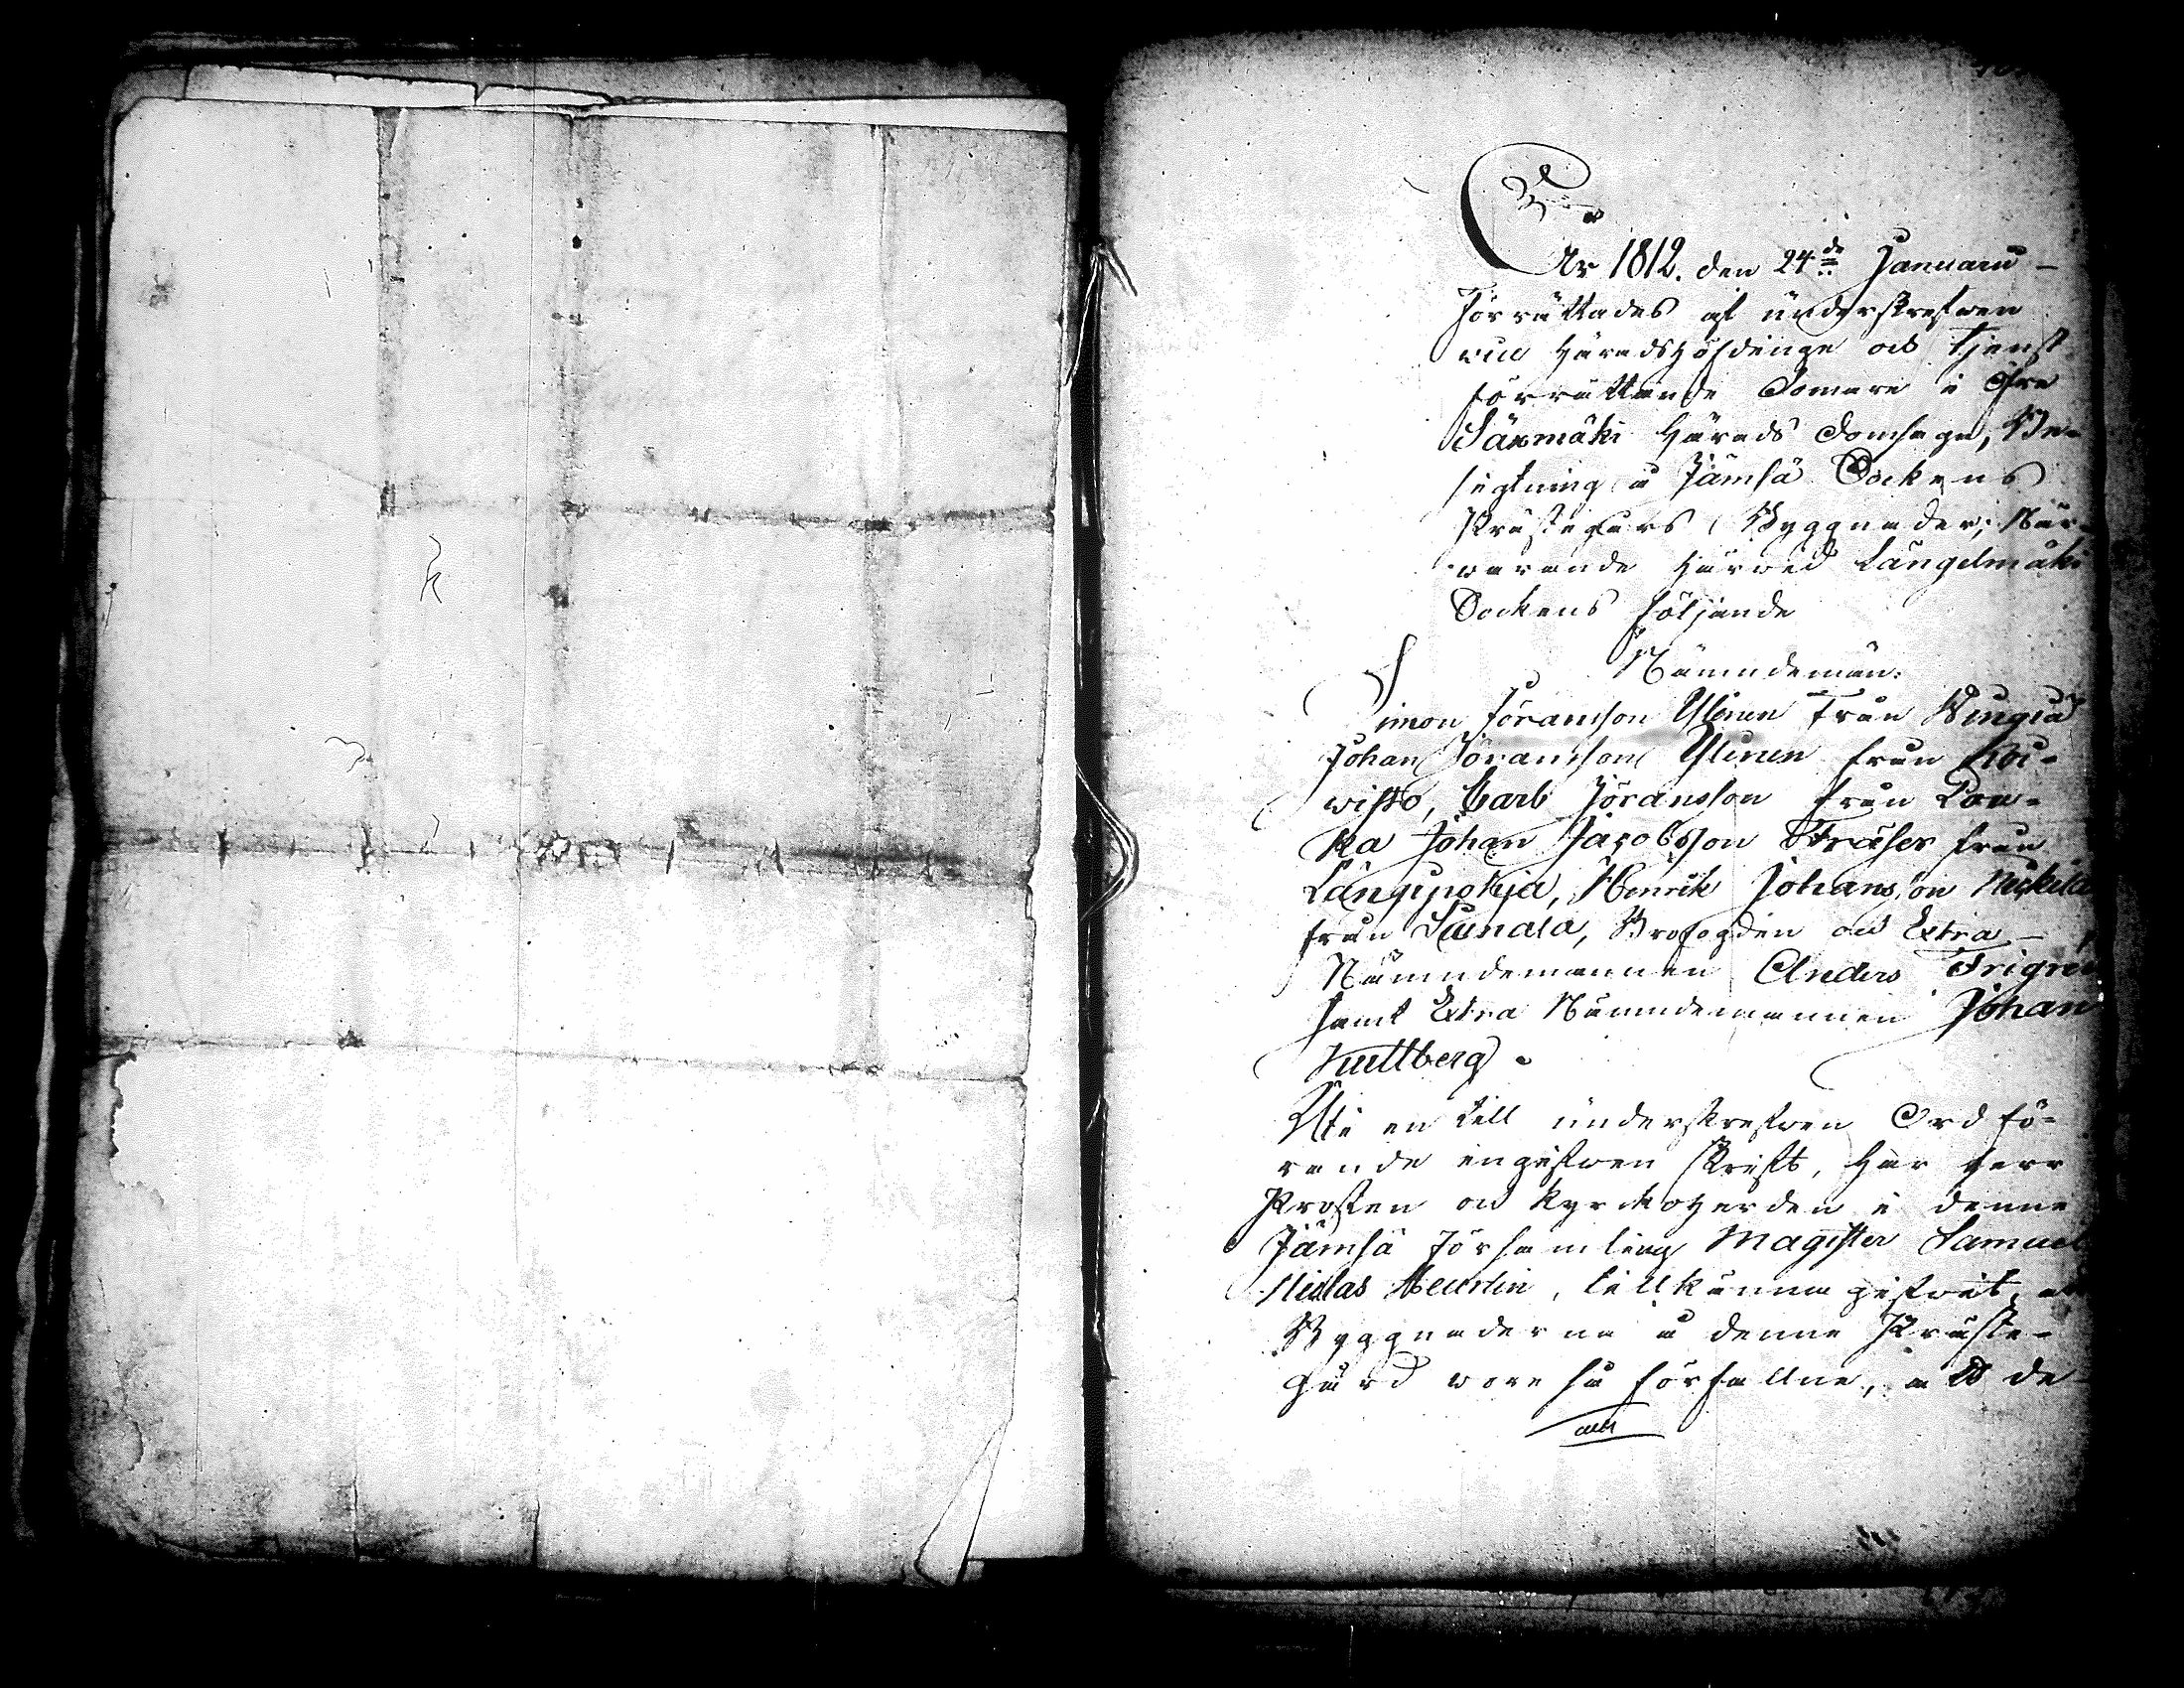 År 1812. den 24de Januarii
Förrättades af underskrefwen
vice Häradshöfdinge och Tjenst-
förrättande Domare i Öfre
Säxmäki Härads Domsaga, Be-
sigtning å Jämsä Sockens
Prästegårs Byggnader; När-
warande härwid Längelmäki
Sockens följande
Nämndemän:
Simon Jöransson Ylinen från
Johan Jöransson Ylinen från
wisto, Carl Jöransson från
ka Johan Jacobsson Fräser från
Längipohja, Henrik Johansson
från Suinala, Brofogden och Extra
Nämndemannen Anders
samt Extra Nämndemannen Johan
Uti en till underskrefwen Ordfö-
rande ingifwen skrift, har Herr
Prosten och Kyrckoherden i denne
Jämsä Församling Magister Samuel
Niclas Heurlin, tillkänna gifwit, at
Byggnaderna å denne Präste-
gård wore så förfallne, att de